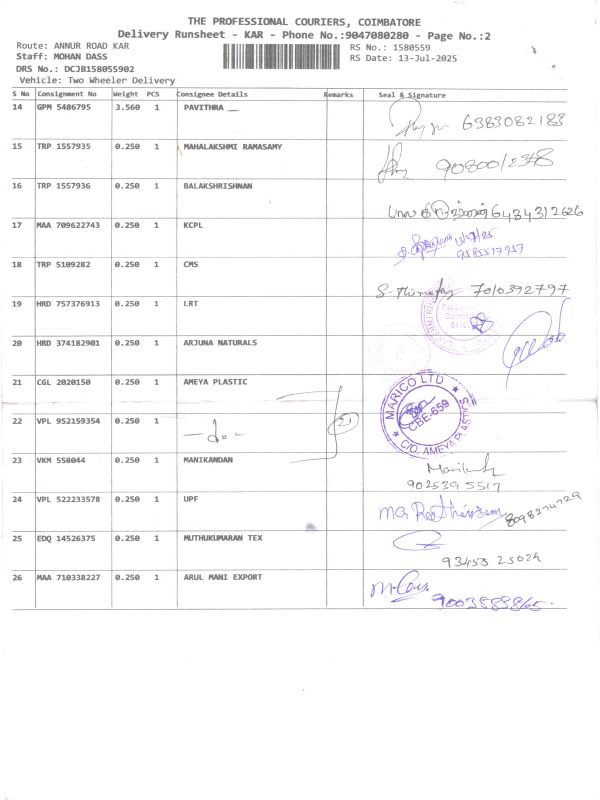 THE PROFESSIONAL COURIERS, COIMBATORE
Delivery Runsheet - KAR - Phone No.:9047080280 - Page No.:2
Route: ANNUR ROAD KAR
RS No.: 1580559
Staff: MOHAN DASS
RS Date: 13-Jul-2025
DRS No.: DCJB158055902
Vehicle: Two Wheeler Delivery
S No Consignment No Weight PCS Consignee Details Remarks Seal & Signature
14 GPM 5486795 3.560 1 PAVITHRA
6383082183
15 TRP 1557935 0.250 1 MAHALAKSHMI RAMASAMY
16 TRP 1557936 0.250 1 BALAKSHRISHNAN
6484312626
17 MAA 709622743 0.250 1 KCPL
13/07/25
9585517957
18 TRP 5109282 0.250 1 CMS
7010392797
19 HRD 757376913 0.250 1 LRT
20 HRD 374182901 0.250 1 ARJUNA NATURALS
21 CGL 2020150 0.250 1 AMEYA PLASTIC
MARICO LTD
CBE-659
C/O. AMEYA PLASTICS
22 VPL 952159354 0.250 1 —do—
23 VKM 558044 0.250 1 MANIKANDAN
9025395517
24 VPL 522233578 0.250 1 UPF
25 EDQ 14526375 0.250 1 MUTHUKUMARAN TEX
93458 25029
26 MAA 710338227 0.250 1 ARUL MANI EXPORT